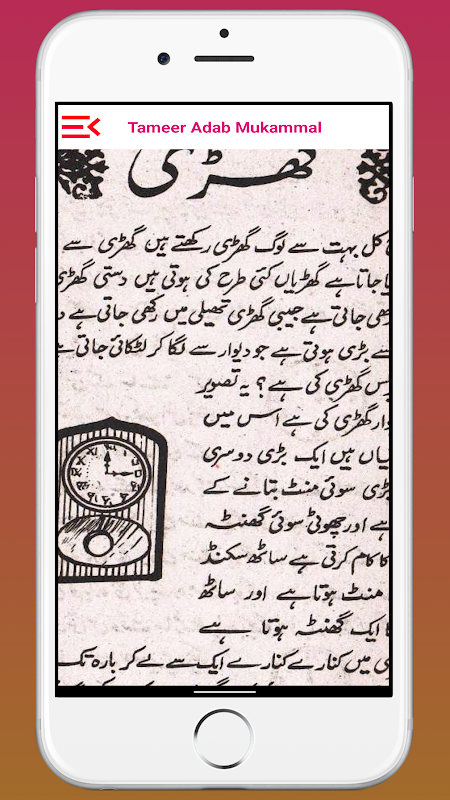 Tameer Adab Mukammal
گھڑی
کل بہت سے لوگ گھڑی رکھتے ہیں گھڑی سے
جاتا ہے گھڑیاں کئی طرح کی ہوتی ہیں دستی گھڑی
جاتی ہے جیبی گھڑی تھیلی میں رکھی جاتی ہے
سے بڑی ہوتی ہے جو دیوار سے لگا کر لٹکائی جاتی ہے
س گھڑی کی ہے؟ یہ تصویر
گھڑی کی ہے اس میں
ہیں ایک بڑی دوسری
بڑی سوئی منٹ بتانے کے
ہے اور چھوٹی سوئی گھنٹہ
کا کام کرتی ہے ساٹھ سکنڈ
منٹ ہوتا ہے اور ساٹھ
کا ایک گھنٹہ ہوتا ہے
میں کنارے کنارے ایک سے لے کر بارہ تک